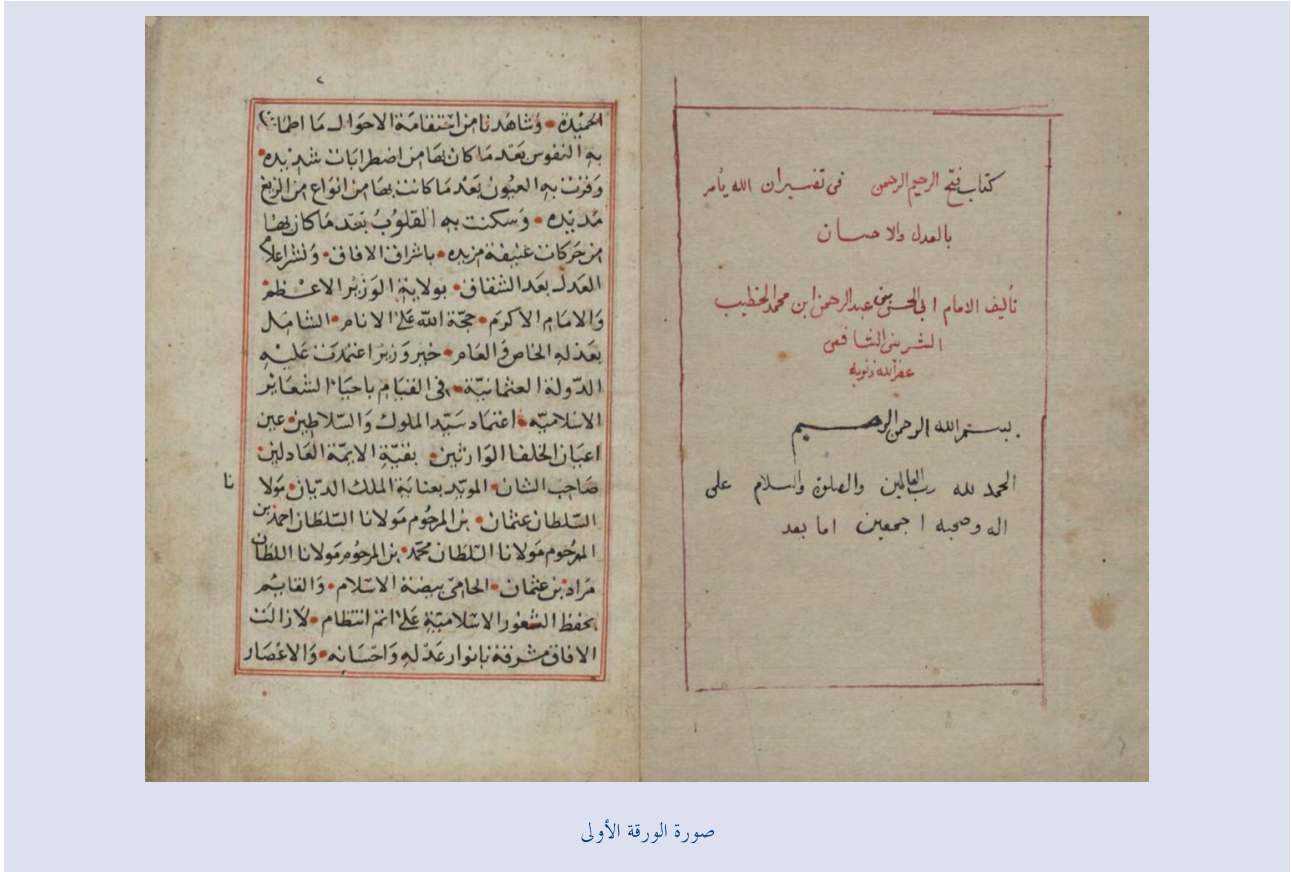 كتاب فتح الرحيم الرحمن في تفسير ان الله يأمر
بالعدل والاحسان
تأليف الامام ابي الحسن بن عبد الرحمن ابن محمد الخطيب
الشربيني الشافعي
غفر الله ذنوبه
بسم الله الرحمن الرحيم
الحمد لله رب العالمين والصلوة والسلام على
اله وصحبه اجمعين اما بعد
الحميدة وشاهدنا من استقامة الاحوال ما اطمأنت
به النفوس بعد ما كان بها من اضطرابات شديده
وقرت به العيون بعد ما كانت بها من انواع من الزيغ
مديده وسكنت به القلوب بعد ما كان بها
من حركات عنيفة مزيده باشراق الافاق ونشر اعلام
العدل بعد الشقاق بولاية الوزير الاعظم
والامام الاكرم حجة الله على الانام الشامل
بعدله الخاص والعام خير وزير اعتمدت عليه
الدولة العثمانية في القيام باحياء الشعاير
الاسلاميه اعتماد سيد الملوك والسلاطين عين
اعيان الخلفا الوارثين بقية الايمة العادلين
صاحب الشان المويد بعناية الملك الديان مولا نا
السلطان عثمان بن المرحوم مولانا السلطان احمد بن
المرحوم مولانا السلطان محمد بن المرحوم مولانا السلطان
مراد بن عثمان الحامي بيضة الاسلام والقايم
بحفظ الثغور الاسلامية على اتم انتظام لازالت
الافاق مشرقة بانوار عدله واحسانه والاعصار
صورة الورقة الأولى